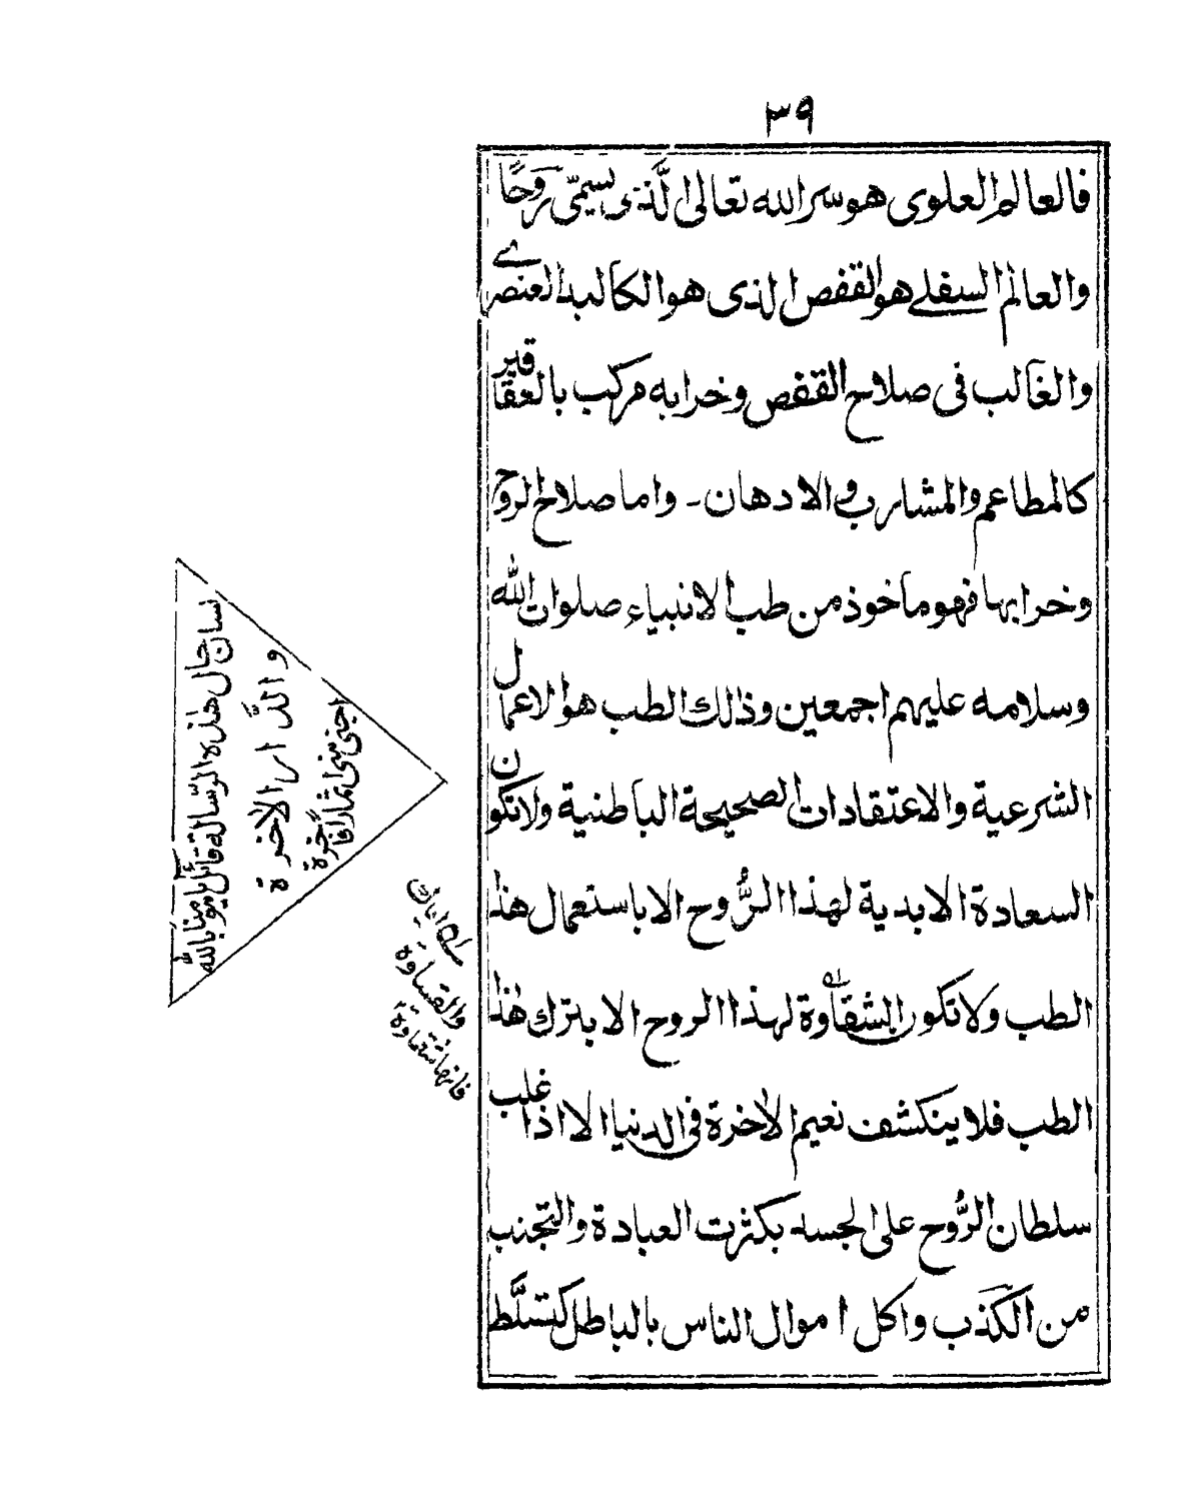 ٣٩
فالعالم العلوى هو سر الله تعالى الَّذى يسمّى روحًا
والعالم السفلے هو القفص الذى هو الكالبد العنصرے
والغالب فى صلاح القفص وخرابه مركب بالعقاقير
كالمطاعم والمشارب والادهان ـ واما صلاح الروح
وخرابها فهو ماخوذ من طب الانبياء صلوات الله
وسلامه عليهم اجمعين وذالك الطب هو الاعمال
الشرعية والاعتقادات الصحيحة الباطنية ولا تكون
السعادة الابدية لهذا الرُّوح الا باستعمال هذا
الطب ولا تكون الشقاوة لهذا الروح الا بترك هٰذا
الطب فلا ينكشف نعيم الاٰخرة فى الدنيا الا اذا غلب
سلطان الرُّوح على الجسد بكثرت العبادة والتجنب
من الكذب واكل اموال الناس بالباطل كتسلَّط
لسان حال هٰذه الرّسالة قائل يا مؤمنا بالله
والدَّار الاٰخرة
اجنى منى اثمارًا فاخرة
والقساوة